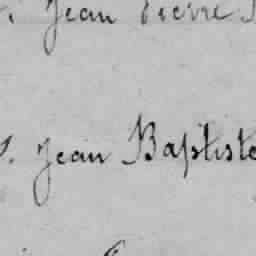 Jean Pierre
S. Jean Baptiste